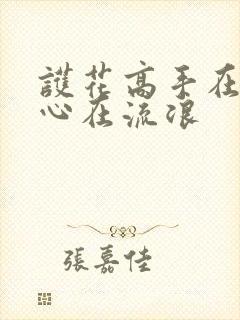 護花高手在
心在流浪
張嘉佳